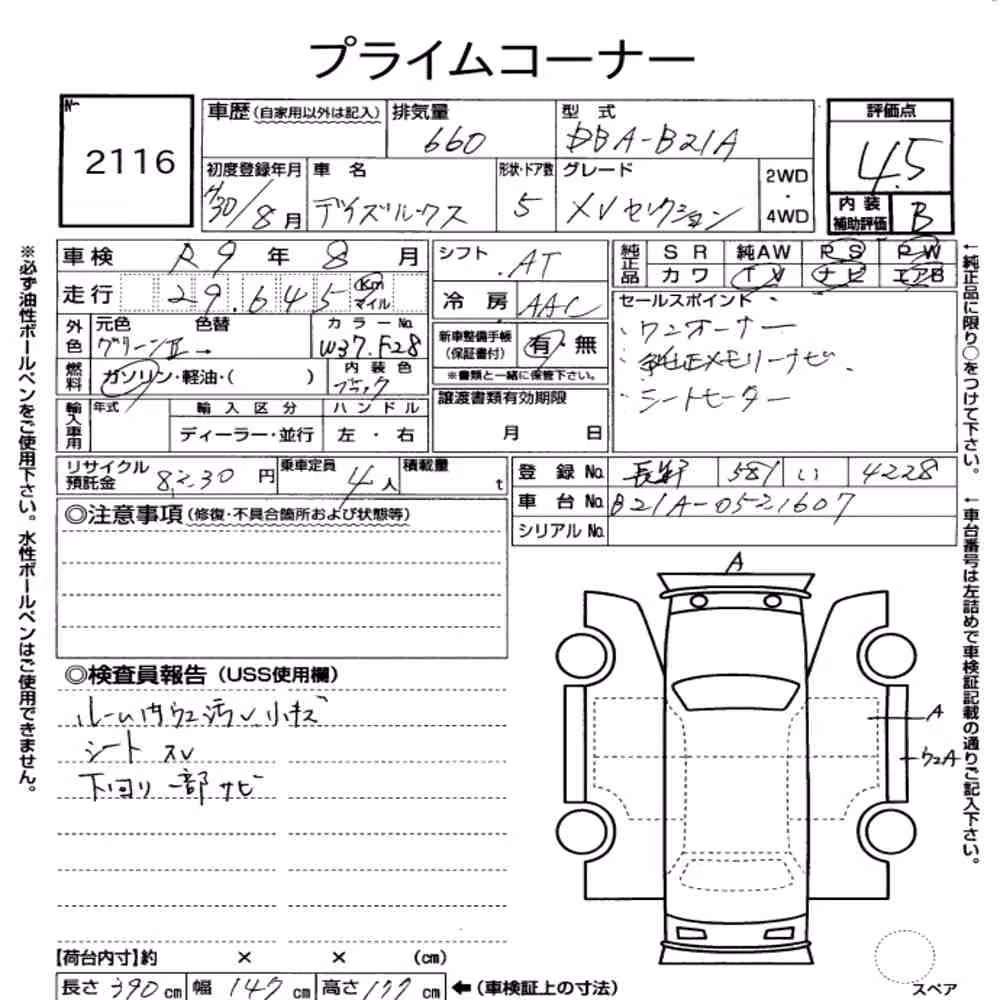 プライムコーナー
2116
車歴(自家用以外は記入) 排気量 660 型式 DBA-B21A
評価点 4.5
初度登録年月 H30/8月 車名 デイズルークス 形状・ドア数 5 グレード XVセレクション 2WD・4WD
内装補助評価 B
車検 R9年8月
シフト AT
純正品 SR 純AW PS PW
カワ TV ナビ エアB
走行 29.645 Km マイル
冷房 AAC
セールスポイント
・ワンオーナー
・純正メモリーナビ
・シートヒーター
外色 元色 グリーンⅡ 色替 → カラーNo. W37.F28
新車整備手帳(保証書付) 有・無
※書類と一緒に保管下さい。
燃料 ガソリン・軽油・( ) 内装色 ブラック
譲渡書類有効期限 月 日
輸入車用 年式 輸入区分 ハンドル
ディーラー・並行 左・右
リサイクル預託金 8230円 乗車定員 4人 積載量 t
登録No. 長野 581 い 4228
車台No. B21A-0521607
シリアルNo.
◎注意事項(修復・不具合箇所および状態等)
◎検査員報告(USS使用欄)
ルーム内ウエ汚レ小キズ
シート スレ
下回リ一部サビ
A
A
ウエA
【荷台内寸】約 × × (cm)
長さ 390cm 幅 147cm 高さ 177cm ←(車検証上の寸法)
スペア
※必ず油性ボールペンをご使用下さい。水性ボールペンはご使用できません。
←純正品に限り○をつけて下さい。
←車台番号は左詰めで車検証記載の通りご記入下さい。